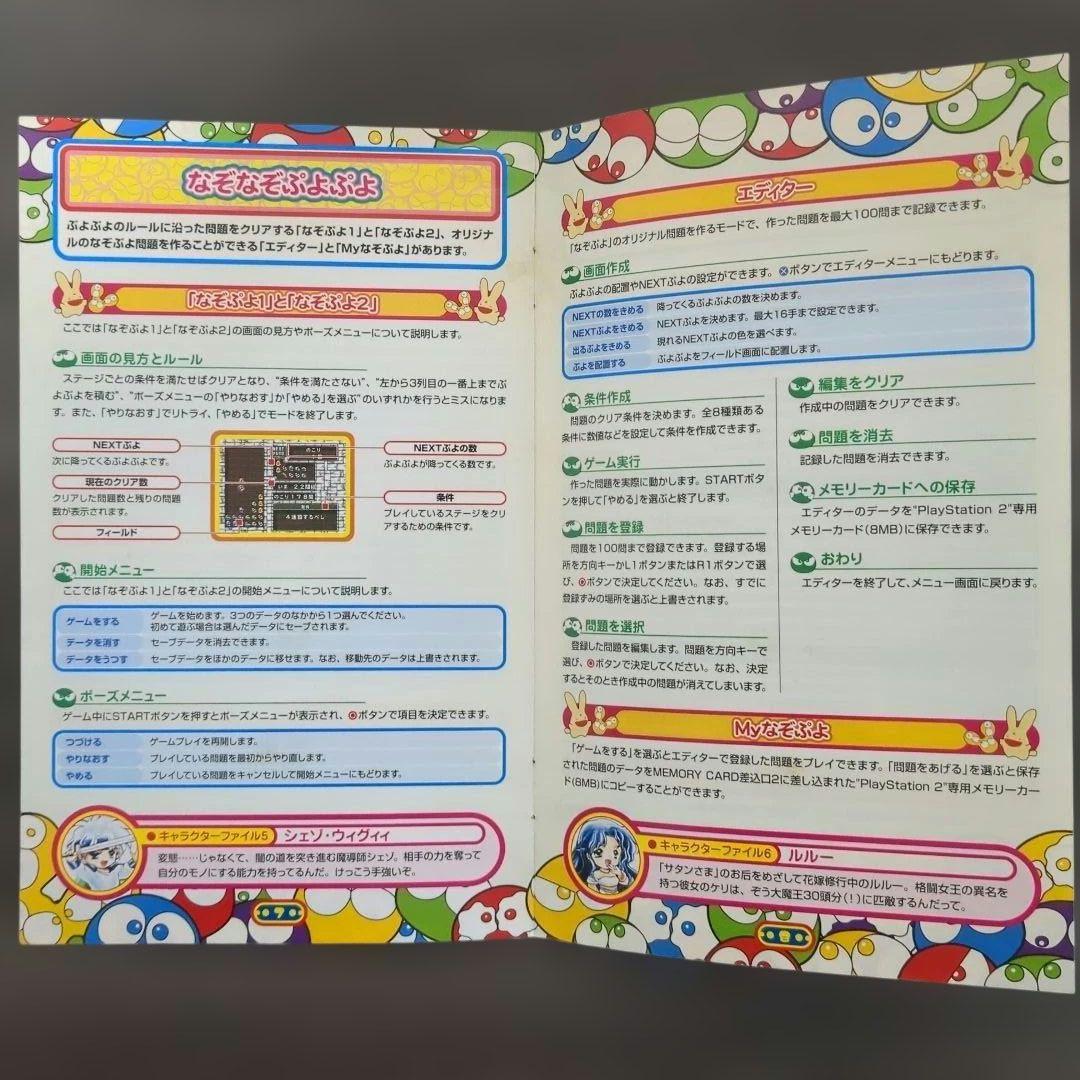 なぞなぞぷよぷよ
ぷよぷよのルールに沿った問題をクリアする「なぞぷよ1」と「なぞぷよ2」、オリジナ
ルのなぞぷよ問題を作ることができる「エディター」と「Myなぞぷよ」があります。
「なぞぷよ1」と「なぞぷよ2」
ここでは「なぞぷよ1」と「なぞぷよ2」の画面の見方やポーズメニューについて説明します。
画面の見方とルール
ステージごとの条件を満たせばクリアとなり、"条件を満たさない"、"左から3列目の一番上までぷ
よぷよを積む"、"ポーズメニューの「やりなおす」か「やめる」を選ぶ"のいずれかを行うとミスになりま
す。また、「やりなおす」でリトライ、「やめる」でモードを終了します。
NEXTぷよ
次に降ってくるぷよぷよです。
現在のクリア数
クリアした問題数と残りの問題
数が表示されます。
フィールド
NEXT
のこり
いま 22問
のこり178問
条件
4連鎖するべし
NEXTぷよの数
ぷよぷよが降ってくる数です。
条件
プレイしているステージをクリ
アするための条件です。
開始メニュー
ここでは「なぞぷよ1」と「なぞぷよ2」の開始メニューについて説明します。
ゲームをする ゲームを始めます。3つのデータのなかから1つ選んでください。
初めて遊ぶ場合は選んだデータにセーブされます。
データを消す セーブデータを消去できます。
データをうつす セーブデータをほかのデータに移せます。なお、移動先のデータは上書きされます。
ポーズメニュー
ゲーム中にSTARTボタンを押すとポーズメニューが表示され、◎ボタンで項目を決定できます。
つづける ゲームプレイを再開します。
やりなおす プレイしている問題を最初からやり直します。
やめる プレイしている問題をキャンセルして開始メニューにもどります。
●キャラクターファイル5 シェゾ・ウィグィィ
変態……じゃなくて、闇の道を突き進む魔導師シェゾ。相手の力を奪って
自分のモノにする能力を持ってるんだ。けっこう手強いぞ。
エディター
「なぞぷよ」のオリジナル問題を作るモードで、作った問題を最大100問まで記録できます。
画面作成
ぷよぷよの配置やNEXTぷよの設定ができます。⊗ボタンでエディターメニューにもどります。
NEXTの数をきめる 降ってくるぷよぷよの数を決めます。
NEXTぷよをきめる NEXTぷよを決めます。最大16手まで設定できます。
出るぷよをきめる 現れるNEXTぷよの色を選べます。
ぷよを配置する ぷよぷよをフィールド画面に配置します。
条件作成
問題のクリア条件を決めます。全8種類ある
条件に数値などを設定して条件を作成できます。
ゲーム実行
作った問題を実際に動かします。STARTボタ
ンを押して「やめる」を選ぶと終了します。
問題を登録
問題を100問まで登録できます。登録する場
所を方向キーかL1ボタンまたはR1ボタンで選
び、◎ボタンで決定してください。なお、すでに
登録ずみの場所を選ぶと上書きされます。
問題を選択
登録した問題を編集します。問題を方向キーで
選び、◎ボタンで決定してください。なお、決定
するとそのとき作成中の問題が消えてしまいます。
編集をクリア
作成中の問題をクリアできます。
問題を消去
記録した問題を消去できます。
メモリーカードへの保存
エディターのデータを"PlayStation 2"専用
メモリーカード(8MB)に保存できます。
おわり
エディターを終了して、メニュー画面に戻ります。
Myなぞぷよ
「ゲームをする」を選ぶとエディターで登録した問題をプレイできます。「問題をあげる」を選ぶと保存
された問題のデータをMEMORY CARD差込口2に差し込まれた"PlayStation 2"専用メモリーカー
ド(8MB)にコピーすることができます。
●キャラクターファイル6 ルルー
「サタンさま」のお后をめざして花嫁修行中のルルー。格闘女王の異名を
持つ彼女のケリは、ぞう大魔王30頭分(!)に匹敵するんだって。